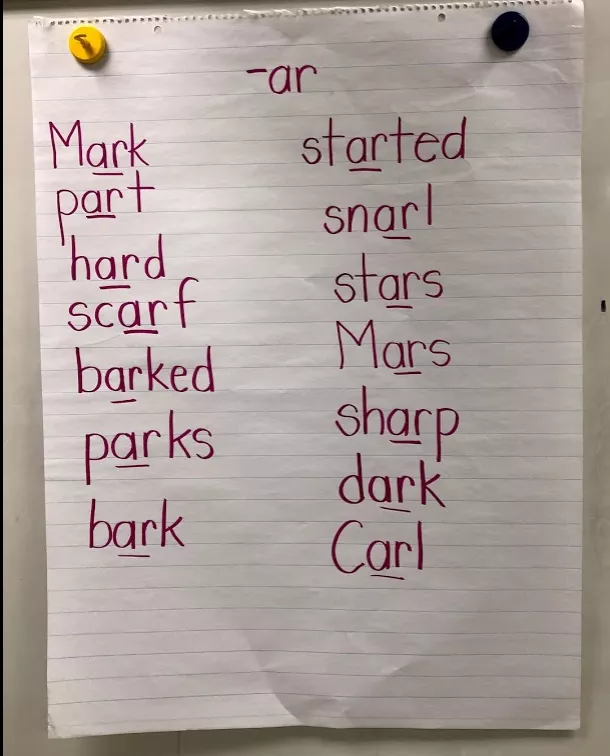 -ar
Mark
part
hard
scarf
barked
parks
bark
started
snarl
stars
Mars
sharp
dark
Carl